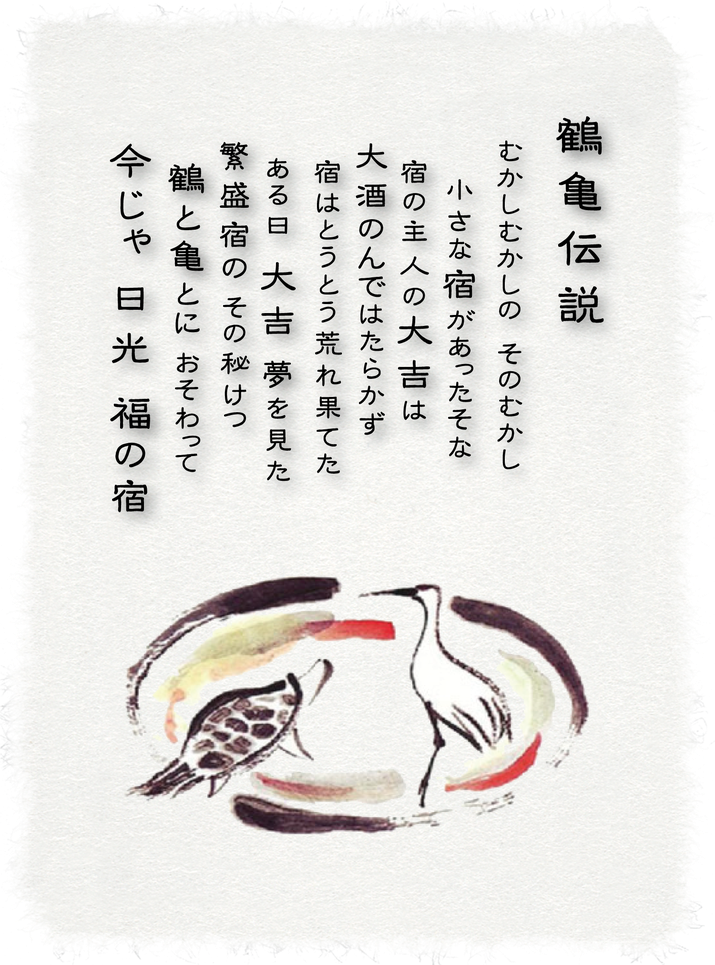 鶴亀伝説
むかしむかしの そのむかし
小さな宿があったそな
宿の主人の大吉は
大酒のんではたらかず
宿はとうとう荒れ果てた
ある日 大吉 夢を見た
繁盛宿の その秘けつ
鶴と亀とに おそわって
今じゃ 日光 福の宿